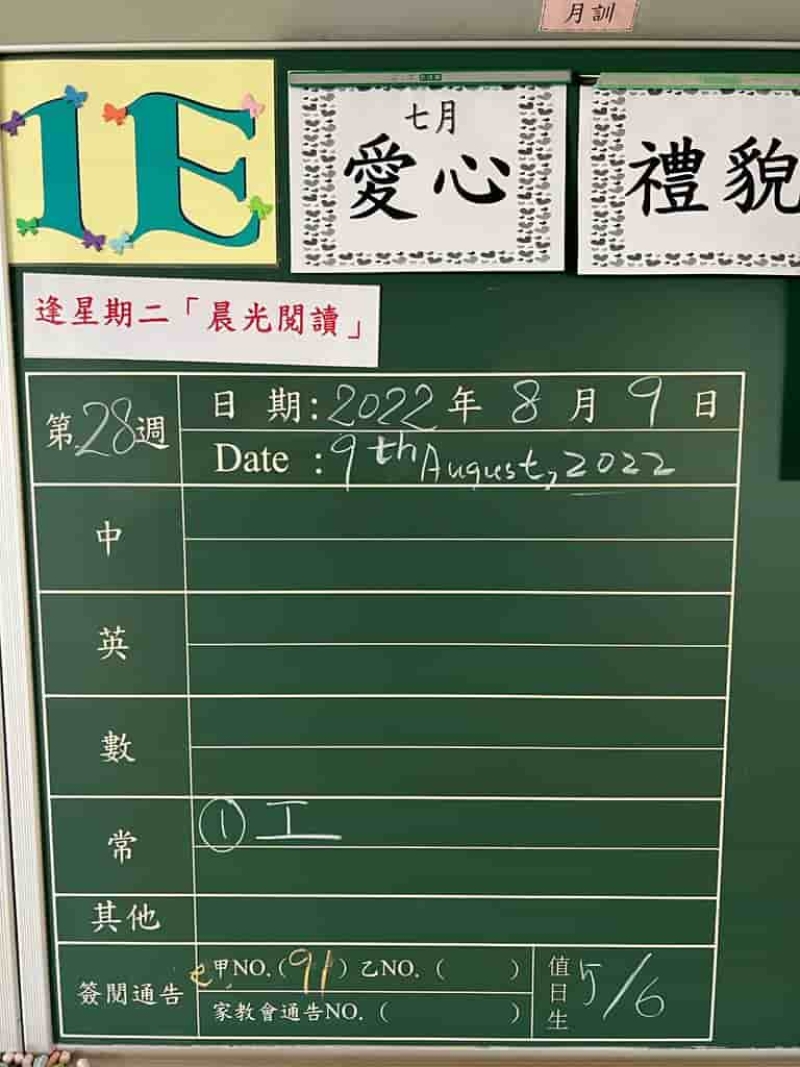 月訓
1E
七月
愛心
禮貌
逢星期二「晨光閱讀」
第28週
日期:2022年8月9日
Date :9th August, 2022
中
英
數
常
① 工
其他
簽閱通告
e甲NO.(91) 乙NO.( )
家教會通告NO.( )
值日生 5/6